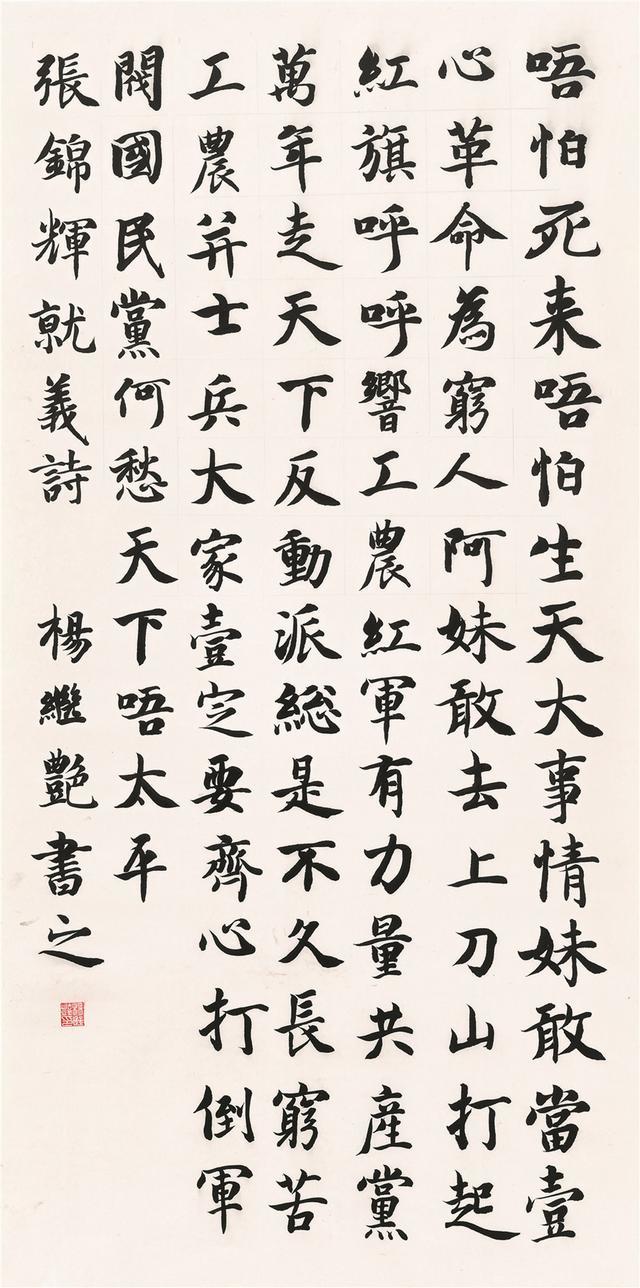 唔怕死来唔怕生天大事情妹敢當壹
心革命為窮人阿妹敢去上刀山打起
紅旗呼呼響工農紅軍有力量共産黨
萬年走天下反動派総是不久長窮苦
工農并士兵大家壹定要齊心打倒軍
閥國民黨何愁天下唔太平
張錦輝就義詩 楊繼艷書之